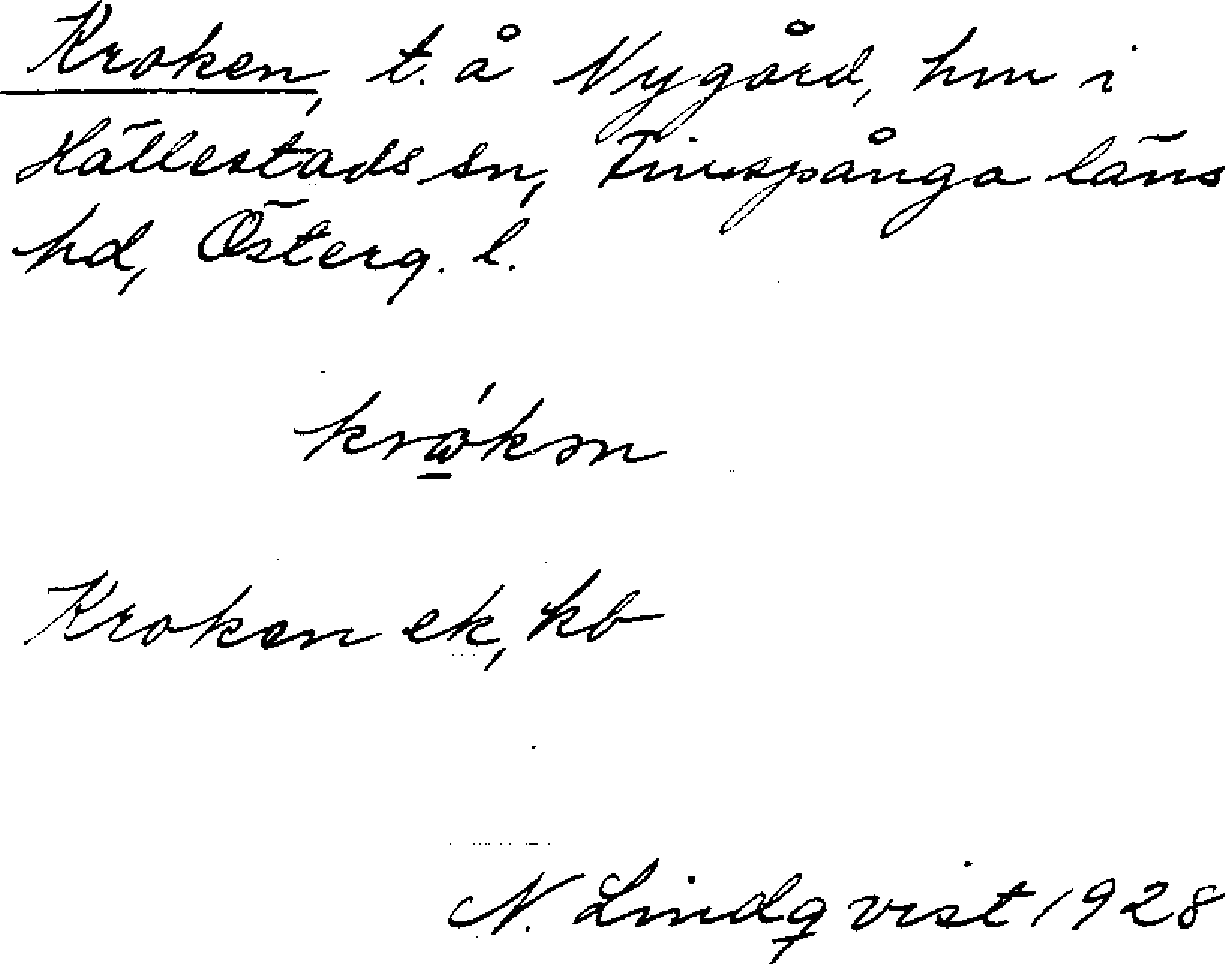 Kroken, t. å Nygård, hm i
Hällestads sn, Finspånga läns
hd, Österg. l.
krώ̲kən
Kroken ek, kb
N. Lindqvist 1928